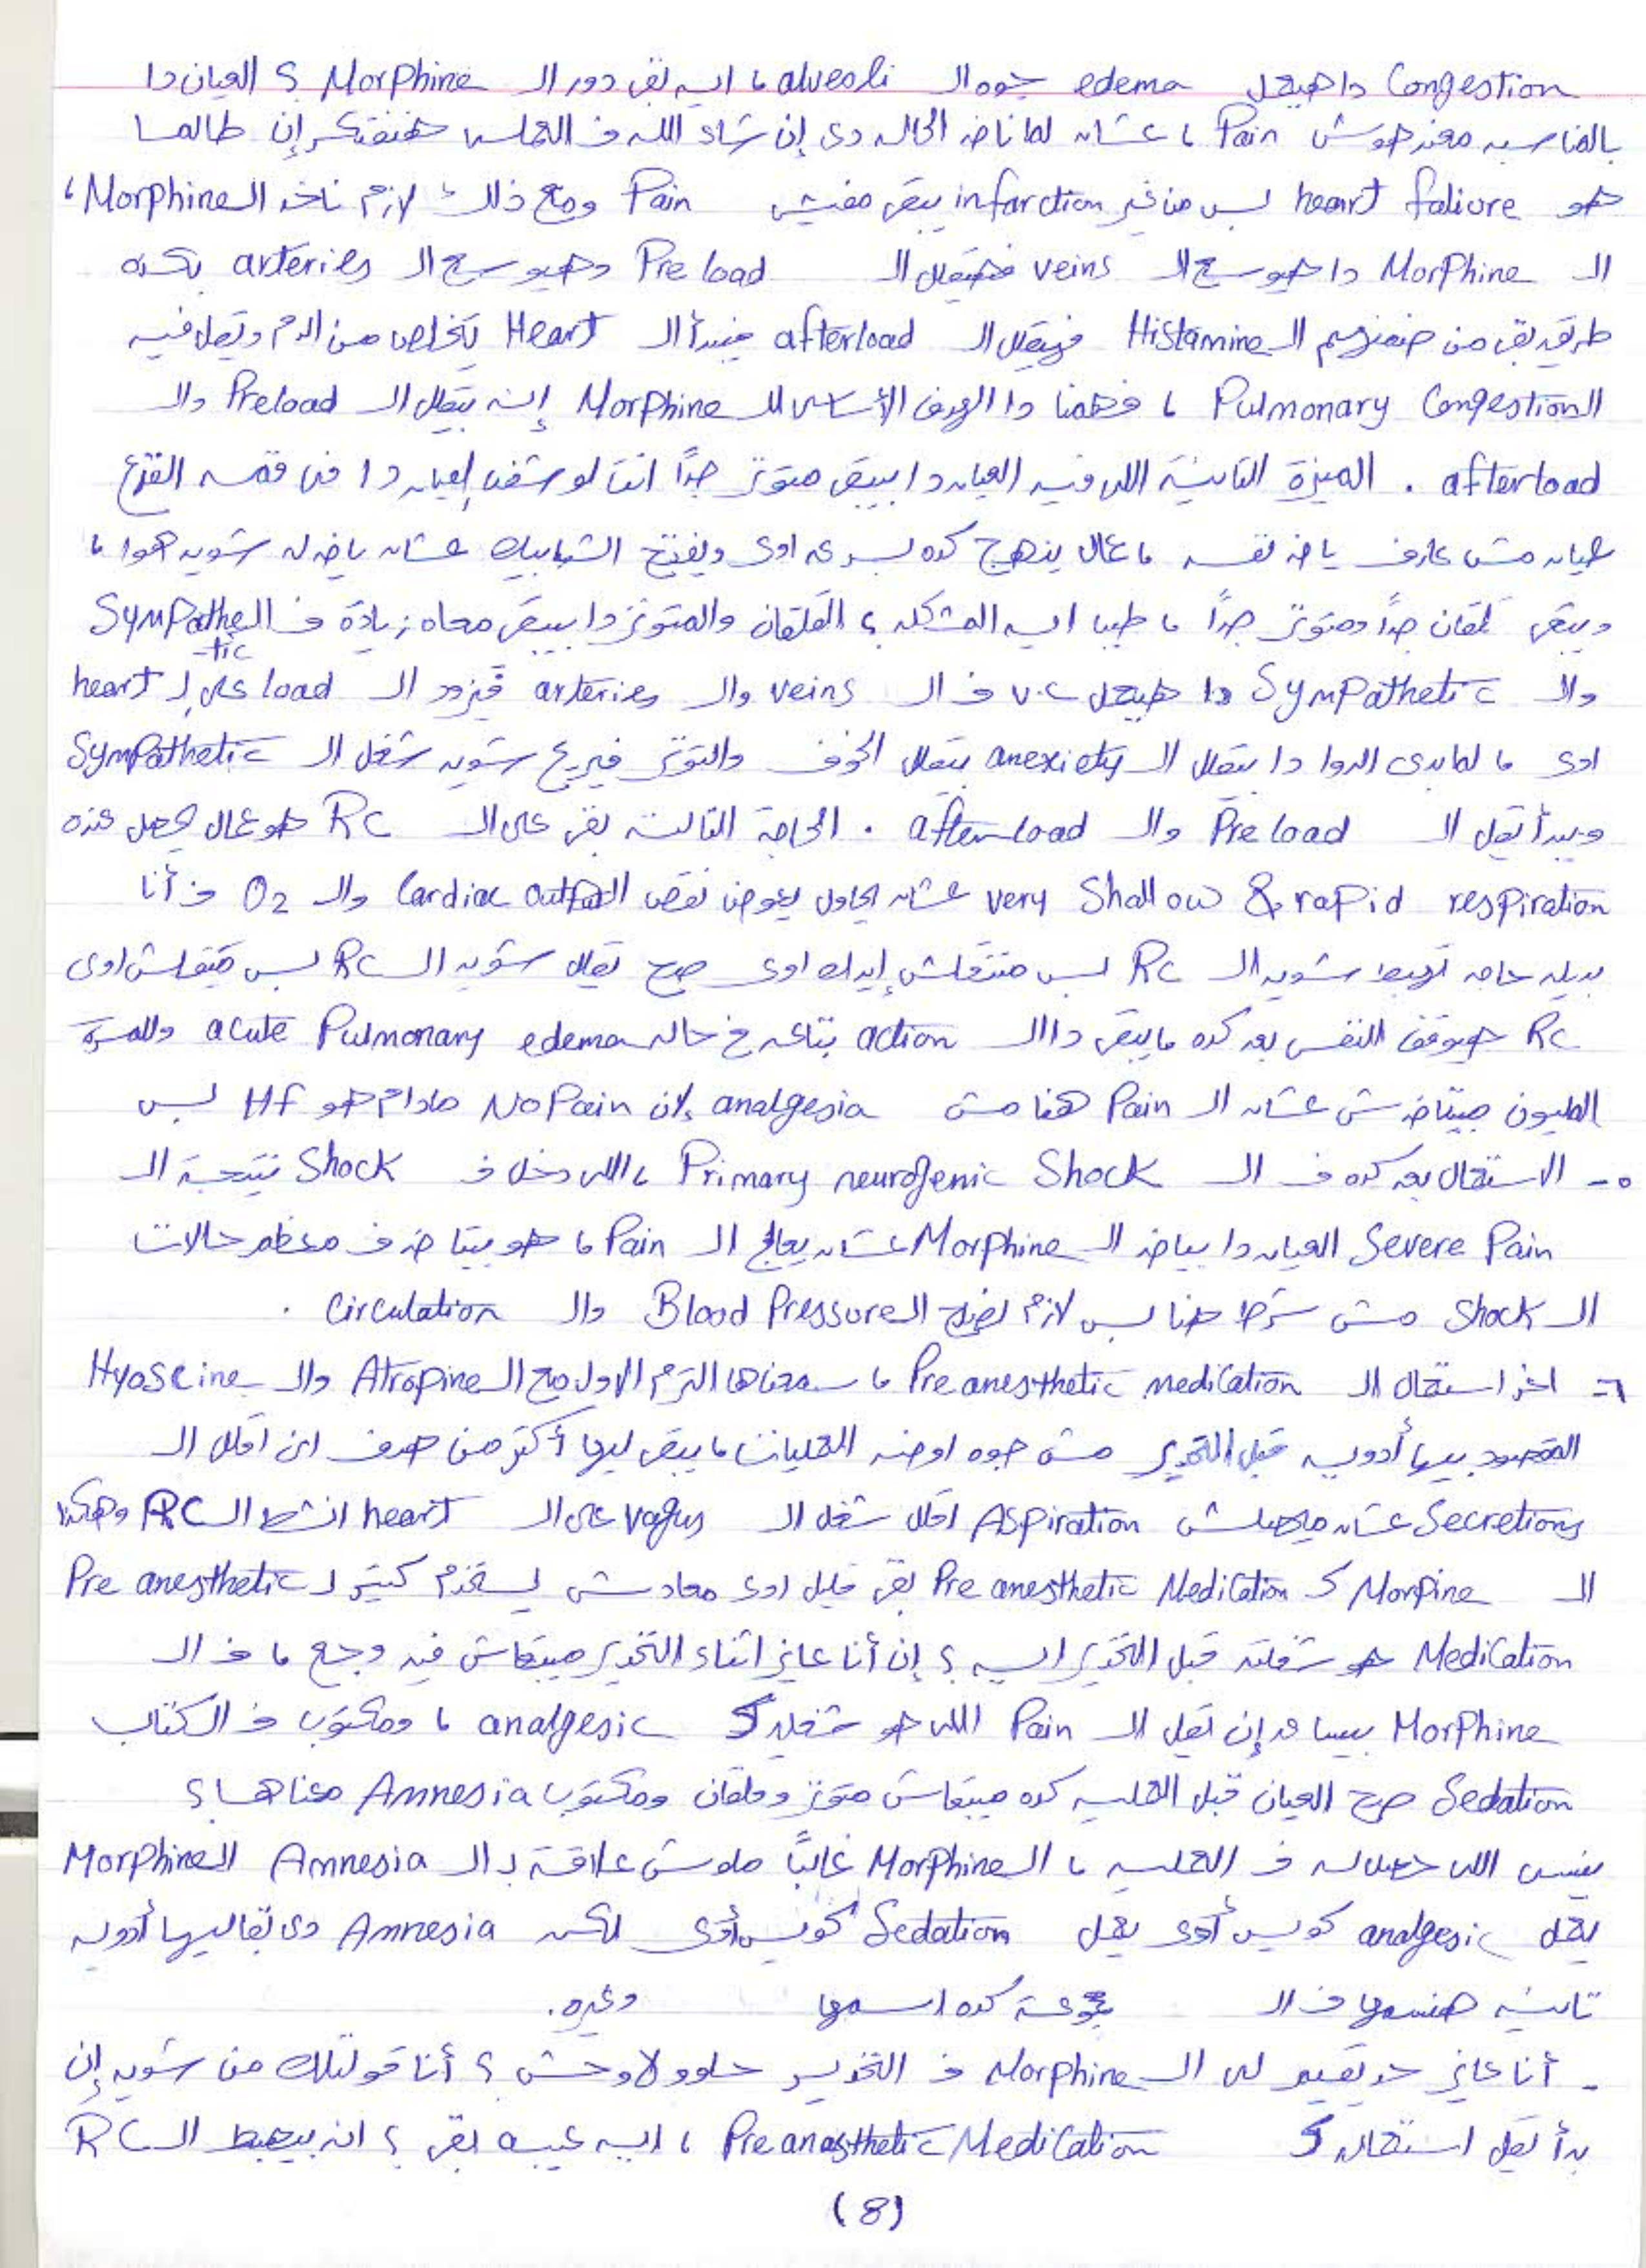 Congestion دا هيعمل edema جوه الـ alveoli ، ايه بقى دور الـ Morphine ؟ العيان دا
بالمناسبه معندهوش Pain ، عشان لما ناخد الحاله دى إن شاء الله ف القلب هنفتكر إن طالما
هو heart faliure بس من غير infarction يبقى مفيش Pain ومع ذلك لازم ناخد الـ Morphine ،
الـ Morphine دا هيوسع الـ veins فهيقلل الـ Pre load وهيوسع الـ arteries بكذه
طريقه بقى من ضمنهم الـ Histamine فيقلل الـ afterload فيبدأ الـ Heart يتخلص من الدم ويقل فيه
الـ Pulmonary Congestion ، فهمنا دا الهدف الأساسى للـ Morphine إنه بيقلل الـ Preload والـ
afterload . الميزة التانية اللى فيه العيان دا بيبقى متوتر جدًا انت لو شفت العيان دا فى قمه الفزع
عيان مش عارف ياخد نفسه ، عمال ينهج كده بسرعه اوى ويفتح الشبابيك عشان ياخد له شويه هوا ،
ويبقى قلقان جدًا ومتوتر جدًا ، طيب ايه المشكله ؟ القلقان والمتوتر دا بيبقى معاه زيادة ف الـ Sympathe
-tic
والـ Sympathetic دا هيعمل V.C ف الـ veins والـ arteries فيزود الـ load على لـ heart
اوى ، لما بدى الدوا دا بيقلل الـ anexiety بيقلل الخوف والتوتر فيريح شويه شغل الـ Sympathetic
ويبدأ يقل الـ Pre load والـ after load . الحاجة التالتة بقى على الـ RC هو عمال يحصل عنده
very Shallow & rapid respiration عشان يحاول يعوض نقص الـ Cardiac output والـ O2 ف أنا
بديله حاجه تهبط شويه الـ RC بس متتقلش إيدك اوى صح تقلل شويه الـ RC بس متقللش اوى
RC هيوقف النفس بعد كده ، يبقى دا الـ action بتاعه ف حاله acute Pulmonary edema وللمرة
المليون مبيتاخدش عشان الـ Pain هنا مش analgesia لان No Pain مادام هو HF بس
٥- الاستعمال بعد كده ف الـ Primary neurogenic Shock ، اللى دخل ف Shock نتيجة الـ
Severe Pain العيان دا بياخد الـ Morphine عشان يعالج الـ Pain ، هو بيتاخد ف معظم حالات
الـ Shock مش شرط هنا بس لازم نصلح الـ Blood Pressure والـ Circulation .
٦- اخر استعمال الـ Pre anesthetic medication ، سمعناها الترم الاول مع الـ Atropine والـ Hyoscine
المقصود بيها أدويه قبل التخدير مش جوه اوضه العمليات ، يبقى ليها أكتر من هدف انى اقلل الـ
Secretions عشان ميحصلش Aspiration اقلل شغل الـ vagus على الـ heart انشط الـ RC وهكذا
الـ Morpine كـ Pre anesthetic Medication بقى قليل اوى معادش يستخدم كتير لـ Pre anesthetic
Medication هو شغلته قبل التخدير ايه ؟ إن أنا عايز اثناء التخدير ميبقاش فيه وجع ، ف الـ
Morphine بيساعد إن يقل الـ Pain اللى هو شغله كـ analgesic ، ومكتوب ف الكتاب
Sedation صح العيان قبل العمليه كده ميبقاش متوتر وقلقان ومكتوب Amnesia معناها ؟
ينسى اللى حصله ف العمليه ، الـ Morphine غالبًا ملوش علاقة بـ الـ Amnesia الـ Morphine
يعمل analgesic كويس أوى يعمل Sedation كويس أوى لكن Amnesia دى بقاليها أدويه
تانيه هنسميها ف الـ مجموعة كده اسمها وغيره.
- أنا عايز حد يقيم لى الـ Morphine ف التخدير حلو ولا وحش ؟ أنا قولتلك من شويه إن
بدأ يقل استعماله كـ Pre anasthetic Medication ، ايه عيبه بقى ؟ انه بيهبط الـ RC
(8)